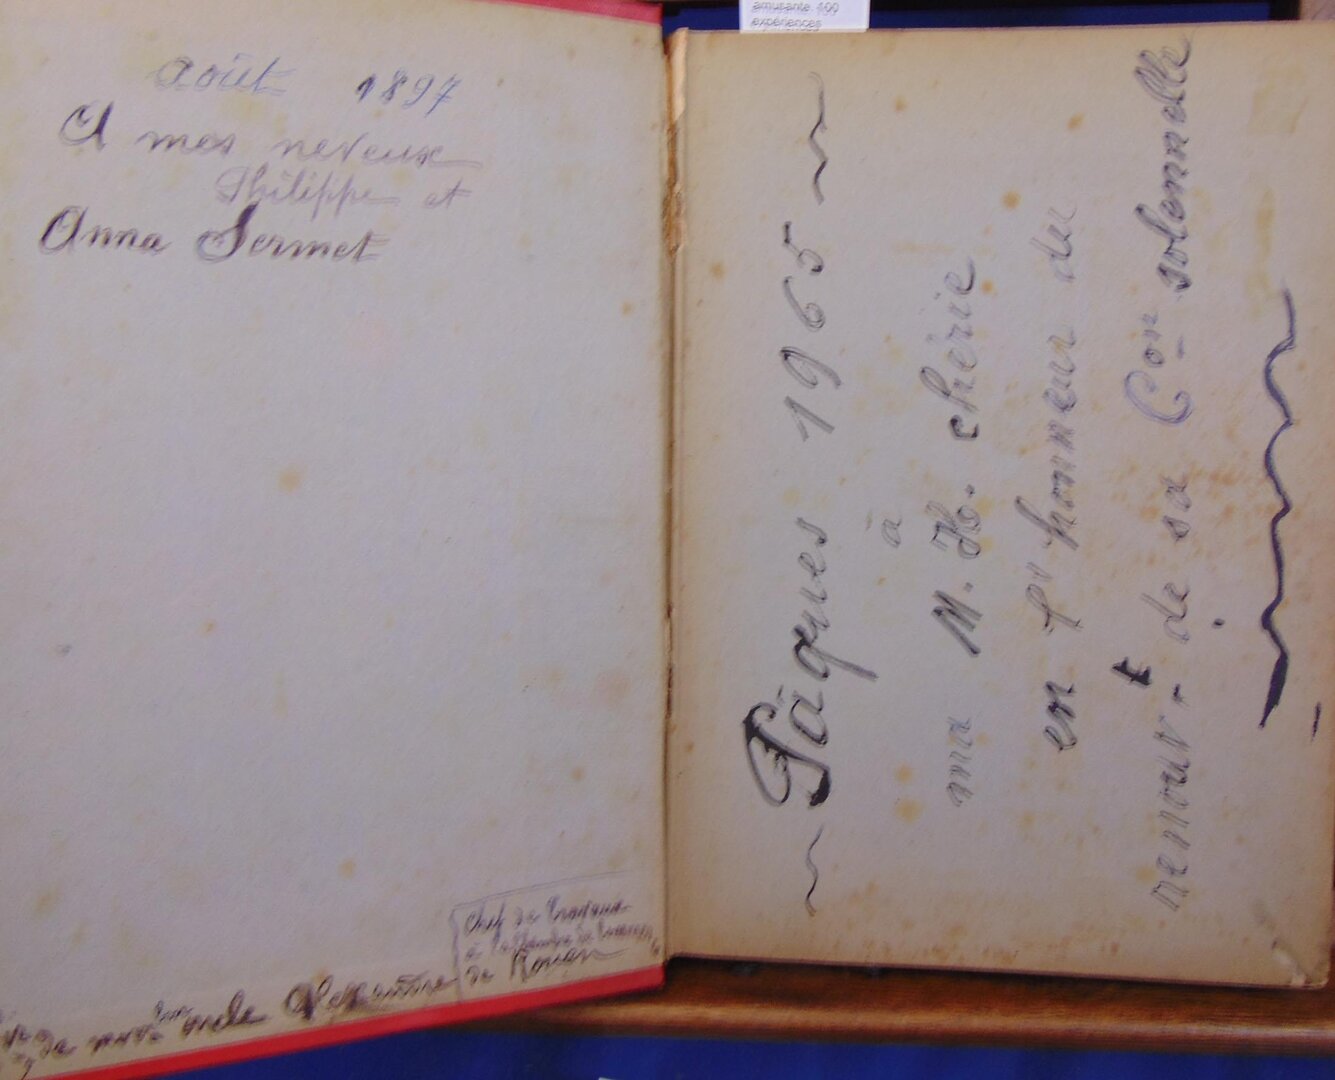 amusante. 100
expériences
août 1897
A mes neveux
Philippe et
Anna Sermet
chef de travaux
de Rouen
de
Pâques 1965
à
ma M. H. chérie
en l'honneur du
renouv.t de sa Con solennelle